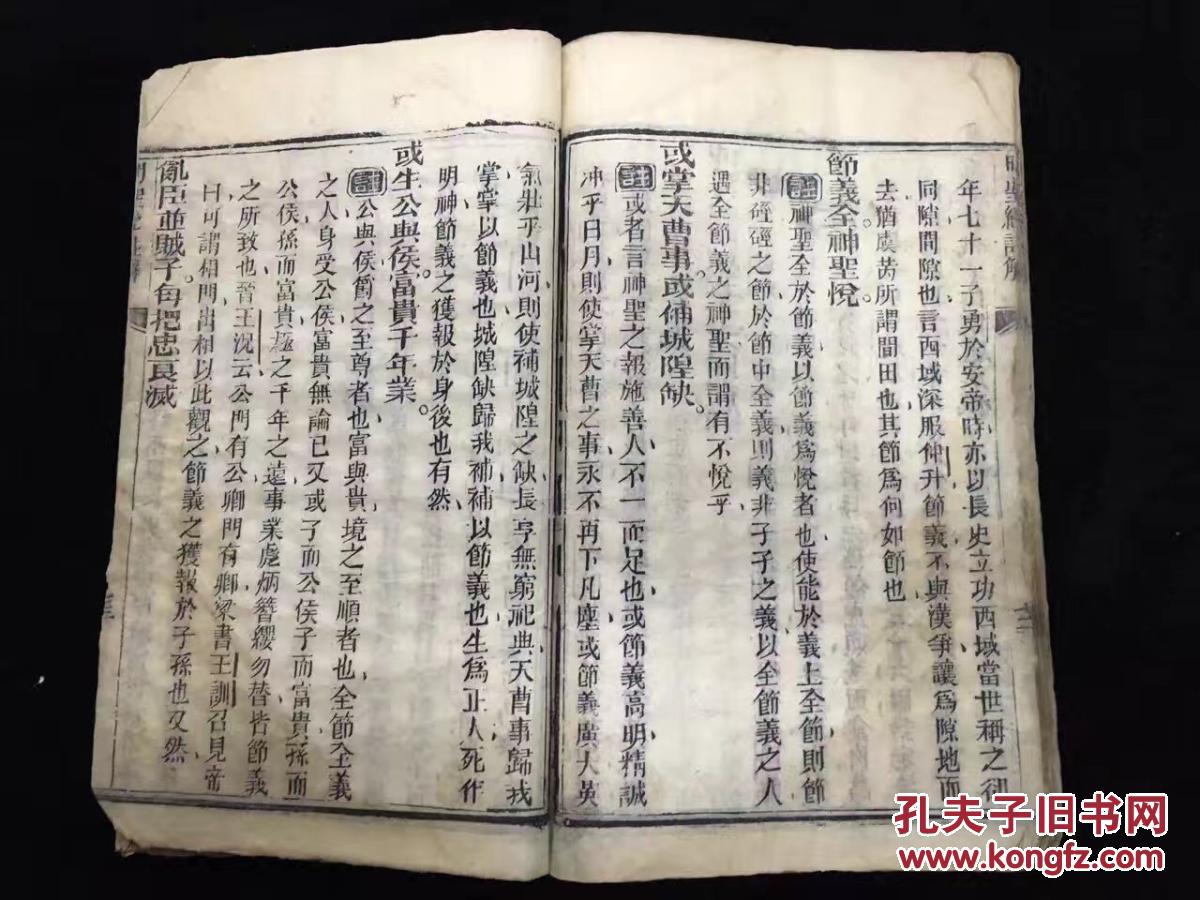 年七十一子勇於安帝時亦以長史立功西域當世稱之郤
同隙間隙也言西域深服仲升節義不與漢爭讓爲隙地而
去猶虞芮所謂間田也其節爲何如節也
節義全神聖悅
註神聖全於節義以節義爲悅者也使能於義上全節則節
非硜硜之節於節中全義則義非孑孑之義以全節義之人
遇全節義之神聖而謂有不悅乎
或掌天曹事或補城隍缺
註或者言神聖之報施善人不一而足也或節義高明精誠
冲乎日月則使掌天曹之事永不再下凡塵或節義廣大英
氣壯乎山河則使補城隍之缺長享無窮祀典天曹事歸我
掌掌以節義也城隍缺歸我補補以節義也生爲正人死作
明神節義之獲報於身後也有然
或生公與侯富貴千年業
註公與侯爵之至尊者也富與貴境之至順者也全節全義
之人身受公侯富貴無論已又或子而公侯子而富貴孫而
公侯孫而富貴極之千年之遠事業彪炳簪纓勿替皆節義
之所致也晉王沈云公門有公卿門有卿梁書王訓召見帝
曰可謂相門出相以此觀之節義之獲報於子孫也又然
亂臣並賊子每把忠良滅
明聖經註解
孔夫子旧书网
www.kongfz.com